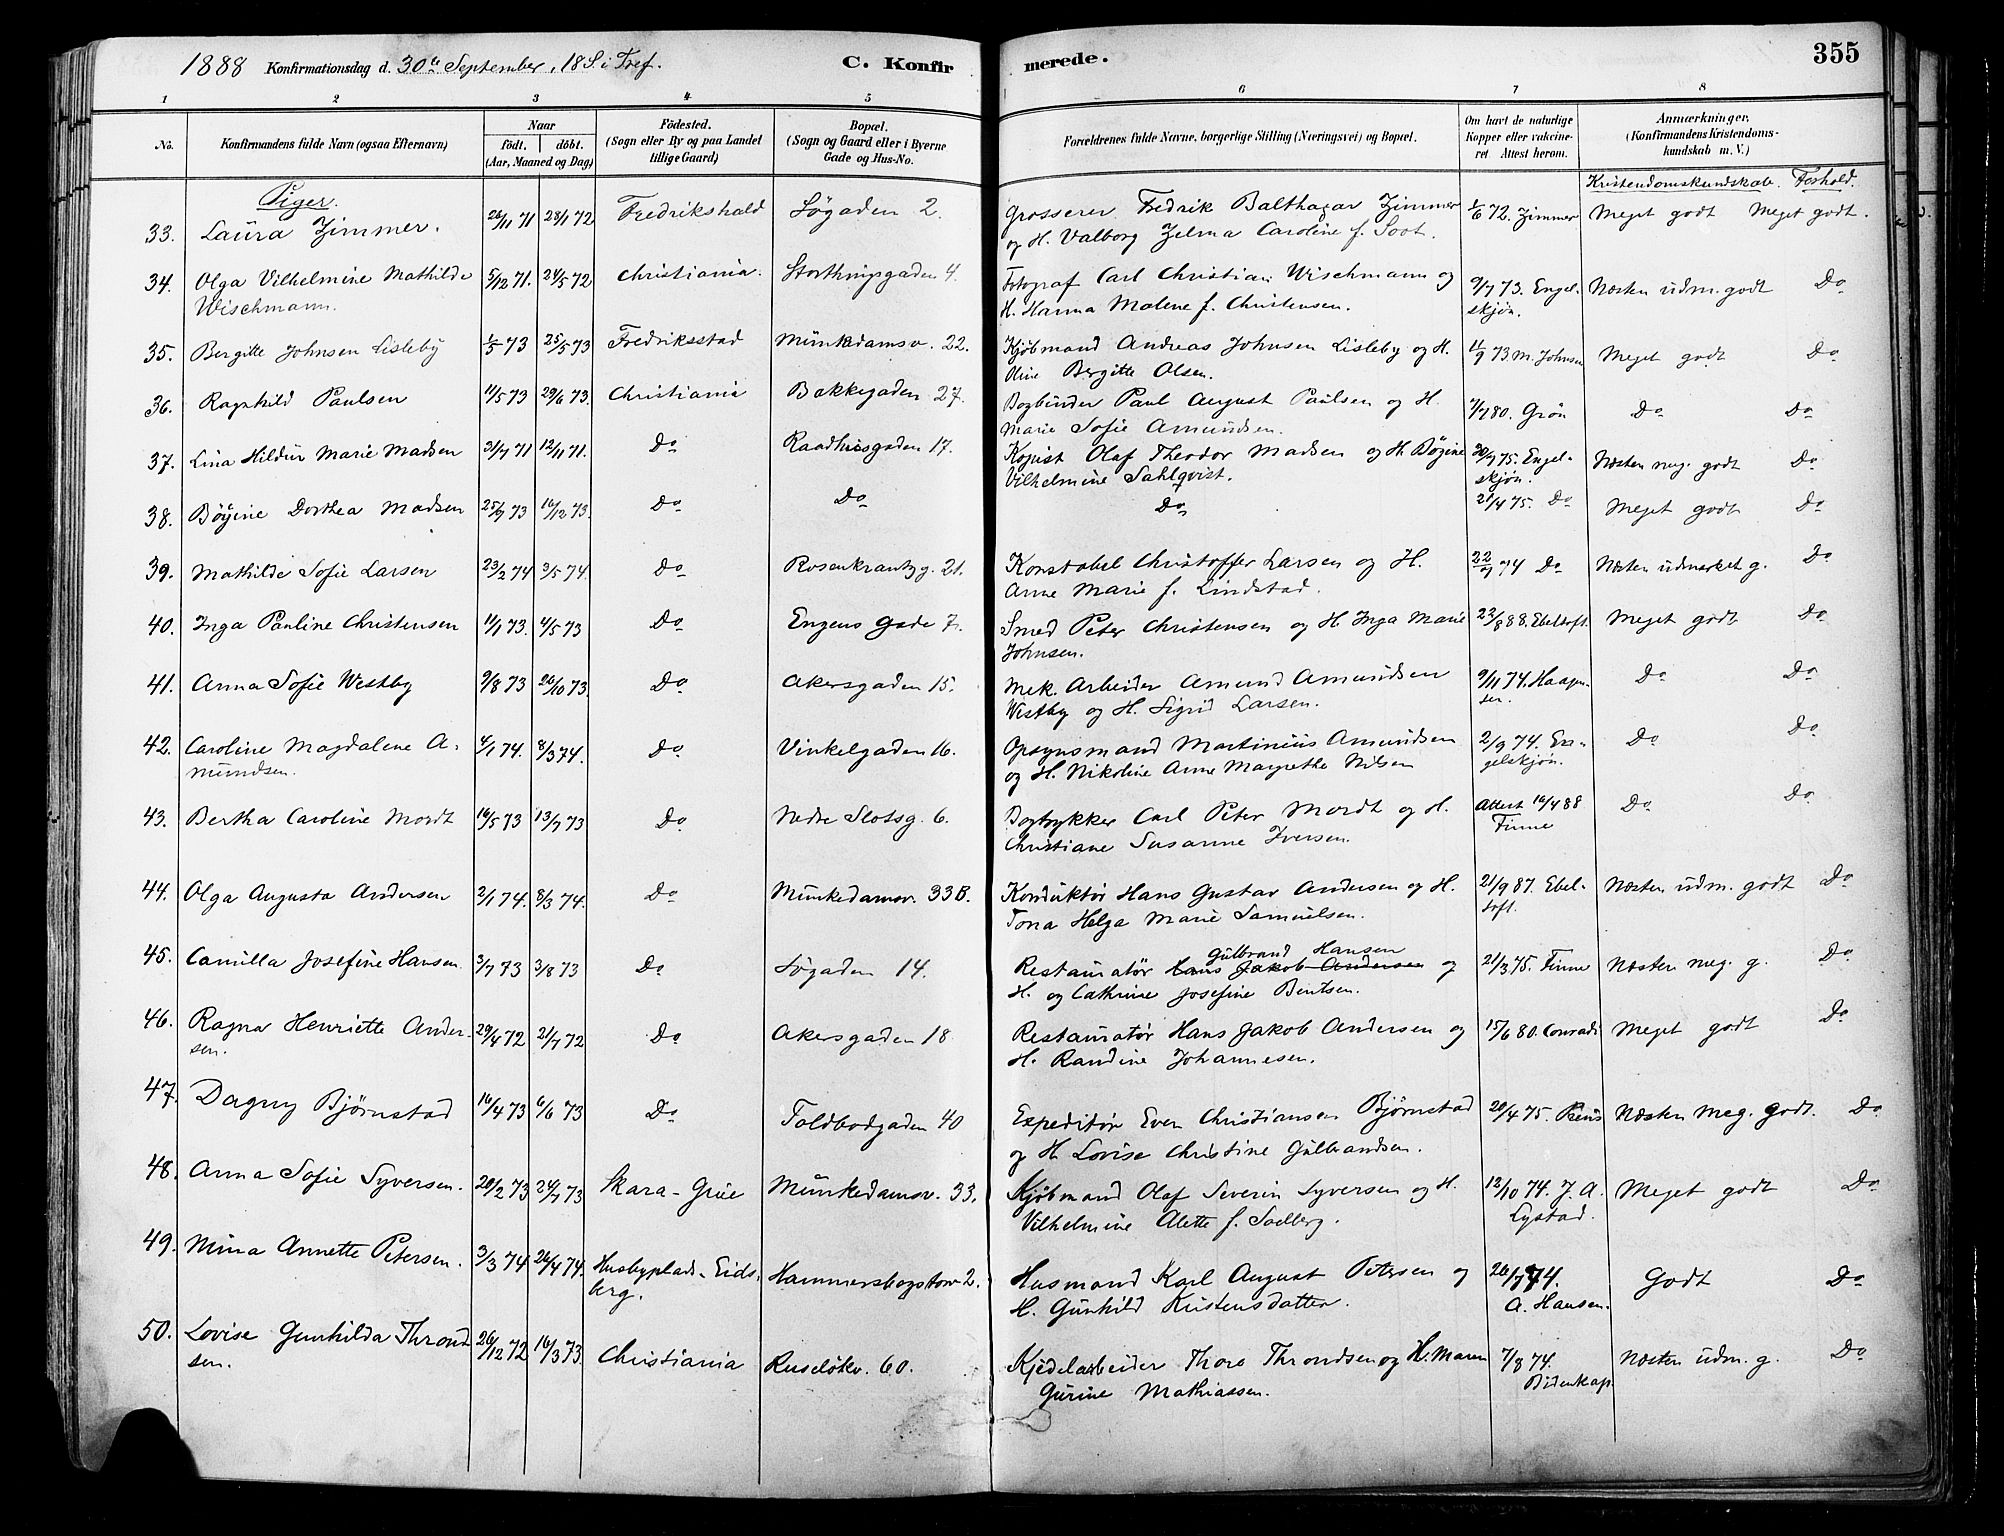 1888 Konfirmationsdag d. 30te September, 18 S. i Tref. C. Konfirmerede. 355
1 2 3 4 5 6 7 8
No. Konfirmandens fulde Navn (ogsaa Efternavn) Naar födt. döbt. (Aar, Maaned og Dag) Födested. (Sogn eller By og paa Landet tillige Gaard) Bopæl. (Sogn og Gaard eller i Byerne Gade og Hus-No. Forældrenes fulde Navne, borgerlige Stilling (Næringsvei) og Bopæl. Om havt de naturlige Kopper eller vakcineret Attest herom. Anmærkninger. (Konfirmandens Kristendomskundskab m. V.)
Piger. Kristendomskundskab. Forhold.
33. Laura Zimmer. 26/11 71 28/1 72 Fredrikshald Søgaden 2. Grosserer Fredrik Balthazar Zimmer 1/6 72. Zimmer Meget godt Meget godt.
og H. Valborg Zelma Caroline f. Soot.
34. Olga Vilhelmine Mathilde 5/12 71. 24/5 72 Christiania. Storthingsgaden 4. Fotograf Carl Christian Wischmann og 9/7 73. Engel- Næsten udm. godt Do
Wischmann. H. Hanna Malene f. Christensen. skjøn.
35. Bergitte Johnsen Lisleby 1/5 73 25/5 73 Fredriksstad Munkdamsv. 22. Kjøbmand Andreas Johnsen Lisleby og H. 11/9 73 M. Johnsen Meget godt Do
Oline Bergitte Olsen.
36. Ragnhild Paulsen 11/5 73 29/6 73. Christiania Bakkegaden 27. Bogbinder Paul August Paulsen og H. 7/7 80. Grøn Do Do
Marie Sofie Amundsen.
37. Lina Hildur Marie Madsen 31/7 71 12/11 71. Do Raadhusgaden 17. Kopist Olaf Theodor Madsen og H. Böyine 20/4 75. Engel- Næsten meg. godt Do
Vilhelmine Sahlqvist. skjøn.
38. Böyine Dorthea Madsen 25/9 73 16/12 73. Do Do Do 20/4 75. Do Meget godt Do
39. Mathilde Sofie Larsen 23/2 74 3/5 74. Do Rosenkrantzg. 21. Konstabel Christoffer Larsen og H. 22/9 74 Do Næsten udmerket g. Do
Anne Marie f. Lindstad.
40. Inga Pauline Christensen 11/1 73. 4/5 73 Do Engens Gade 7. Smed Peter Christensen og H. Inga Marie 23/8 88. Ebeltoft. Meget godt Do
Johnsen.
41. Anna Sofie Westby 9/8 73 26/10 73. Do Akersgaden 15. Mek. Arbeider Amund Amundsen 9/11 74. Haagen- Do Do
Westby og H. Sigrid Larsen. sen.
42. Caroline Magdalene A- 4/1 74. 8/3 74. Do Vinkelgaden 16. Opsynsmand Martinius Amundsen 2/9 74. En- Do Do
mundsen. og H. Nikoline Anne Magrethe Nilsen gelskjøn.
43. Bertha Caroline Mordt 16/5 73 13/7 73 Do Nedre Slotsg. 6. Bogtrykker Carl Peter Mordt og H. Attest 16/4 88 Do Do
Christiane Susanne Iversen. Finne
44. Olga Augusta Andersen 2/1 74. 8/3 74. Do Munkedamsv. 33B. Konduktør Hans Gustav Andersen og H. 21/9 87. Ebel- Næsten udm. godt Do
Tona Helga Marie Samuelsen. toft.
Gulbrand Hansen
45. Camilla Josefine Hansen. 3/7 73 3/8 73 Do Søgaden 14. Restauratør Hans Jakob Andersen og 21/3 75. Finne Næsten meg. g. Do
H. og Cathrine Josefine Bentsen.
46. Ragna Henriette Ander- 29/4 72 21/7 72 Do Akersgaden 18. Restauratør Hans Jakob Andersen og 15/6 80. Conradi Meget godt Do
sen. H. Randine Johannesen.
47. Dagny Bjørnstad 16/4 73 6/6 73 Do Toldbodgaden 40 Expeditør Even Christiansen Bjørnstad 20/4 75. Næsten meg. godt. Do
og H. Lovise Christine Gulbrandsen.
48. Anna Sofie Syversen. 20/2 73 24/7 73 Skara - Grue Munkedamsv. 33. Kjøbmand Olaf Severin Syversen og H. 12/10 74. J. A. Meget godt Do
Vilhelmine Alette f. Sodberg. Lystad.
49. Mina Annette Petersen. 3/3 74 26/4 74. Husbyplads - Eids- Hammersborgstorv 2. Husmand Karl August Petersen og 26/7 74. Godt Do
berg. H. Gunhild Kristensdatter. A. Hansen.
50. Lovise Gunhilda Thrond- 26/12 72 16/3 73. Christiania Ruseløkv. 60. Kjedelarbeider Thore Throndsen og H. Maren 7/8 74. Næsten udm. g. Do
sen. Gurine Mathiassen. Bidenkap.